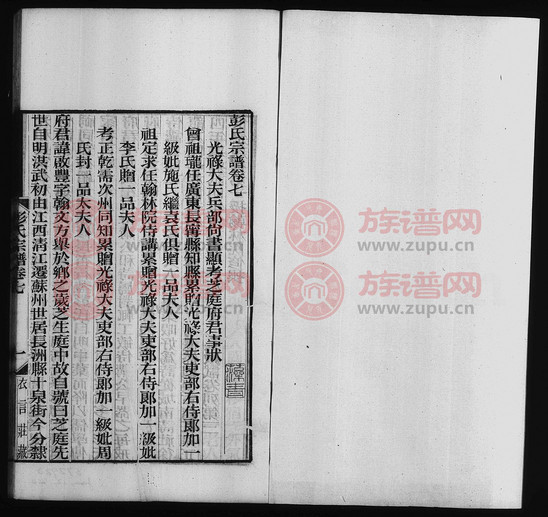 彭氏宗譜卷七
光祿大夫兵部尚書顯考芝庭府君事狀
曾祖瓏任廣東長寧縣知縣累贈光祿大夫吏部右侍郎加一
級妣施氏繼袁氏俱贈一品夫人
祖定求任翰林院侍講累贈光祿大夫吏部右侍郎加一級妣
李氏贈一品夫人
考正乾需次州同知累贈光祿大夫吏部右侍郎加一級妣周
氏封一品太夫人
府君諱啟豐字翰文方舉於鄉之歲芝生庭中故自號曰芝庭先
世自明洪武初由江西清江遷蘇州世居長洲縣十泉街今分隸
彭氏宗譜卷七
一
衣言莊藏
族谱网
www.zupu.cn
族谱网
www.zupu.cn
族谱网
www.zupu.cn
族谱网
www.zupu.cn